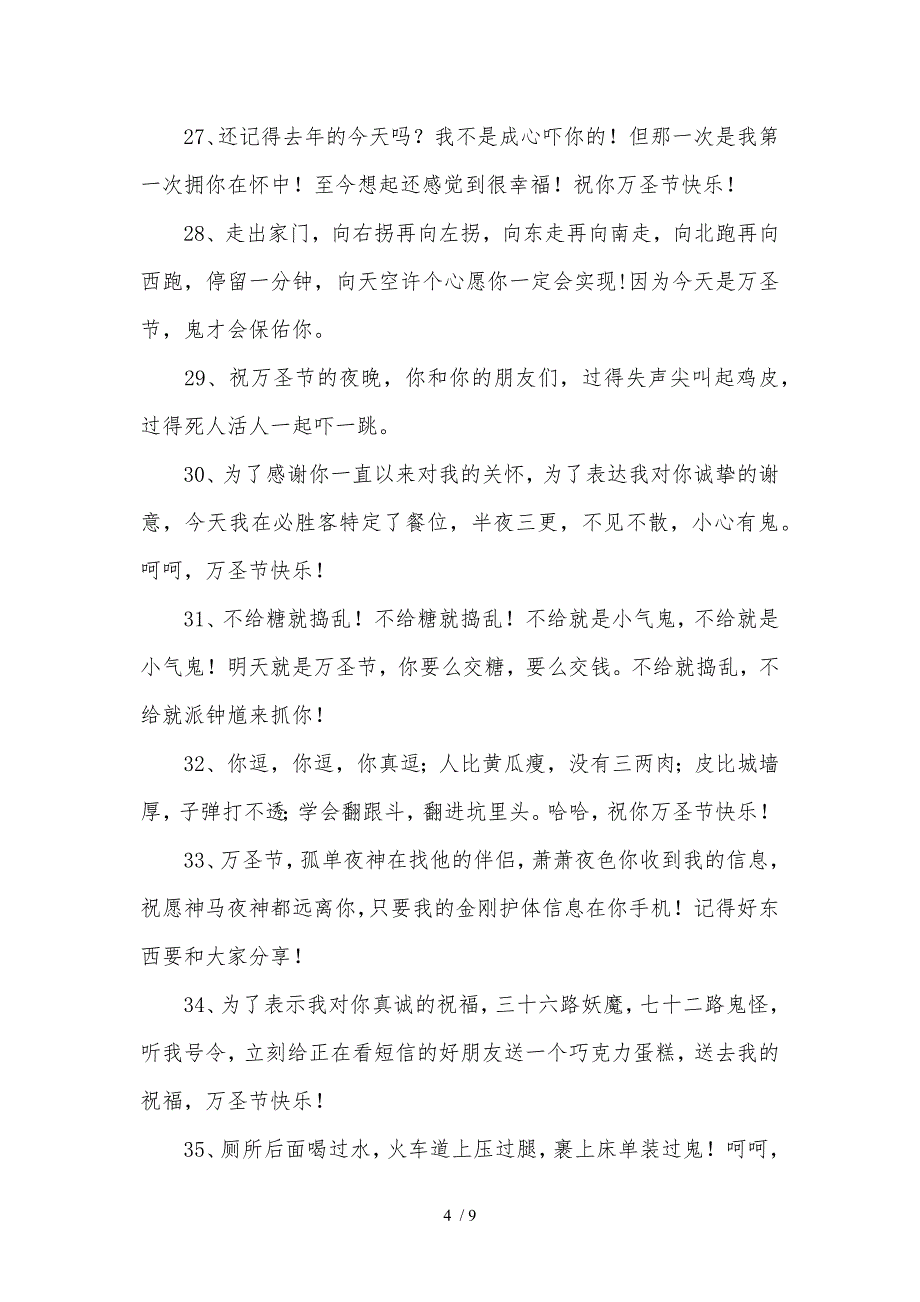 27、还记得去年的今天吗？我不是成心吓你的！但那一次是我第
一次拥你在怀中！至今想起还感觉到很幸福！祝你万圣节快乐！
28、走出家门，向右拐再向左拐，向东走再向南走，向北跑再向
西跑，停留一分钟，向天空许个心愿你一定会实现!因为今天是万圣
节，鬼才会保佑你。
29、祝万圣节的夜晚，你和你的朋友们，过得失声尖叫起鸡皮，
过得死人活人一起吓一跳。
30、为了感谢你一直以来对我的关怀，为了表达我对你诚挚的谢
意，今天我在必胜客特定了餐位，半夜三更，不见不散，小心有鬼。
呵呵，万圣节快乐！
31、不给糖就捣乱！不给糖就捣乱！不给就是小气鬼，不给就是
小气鬼！明天就是万圣节，你要么交糖，要么交钱。不给就捣乱，不
给就派钟馗来抓你！
32、你逗，你逗，你真逗；人比黄瓜瘦，没有三两肉；皮比城墙
厚，子弹打不透；学会翻跟斗，翻进坑里头。哈哈，祝你万圣节快乐！
33、万圣节，孤单夜神在找他的伴侣，萧萧夜色你收到我的信息，
祝愿神马夜神都远离你，只要我的金刚护体信息在你手机！记得好东
西要和大家分享！
34、为了表示我对你真诚的祝福，三十六路妖魔，七十二路鬼怪，
听我号令，立刻给正在看短信的好朋友送一个巧克力蛋糕，送去我的
祝福，万圣节快乐！
35、厕所后面喝过水，火车道上压过腿，裹上床单装过鬼！呵呵，
4 / 9